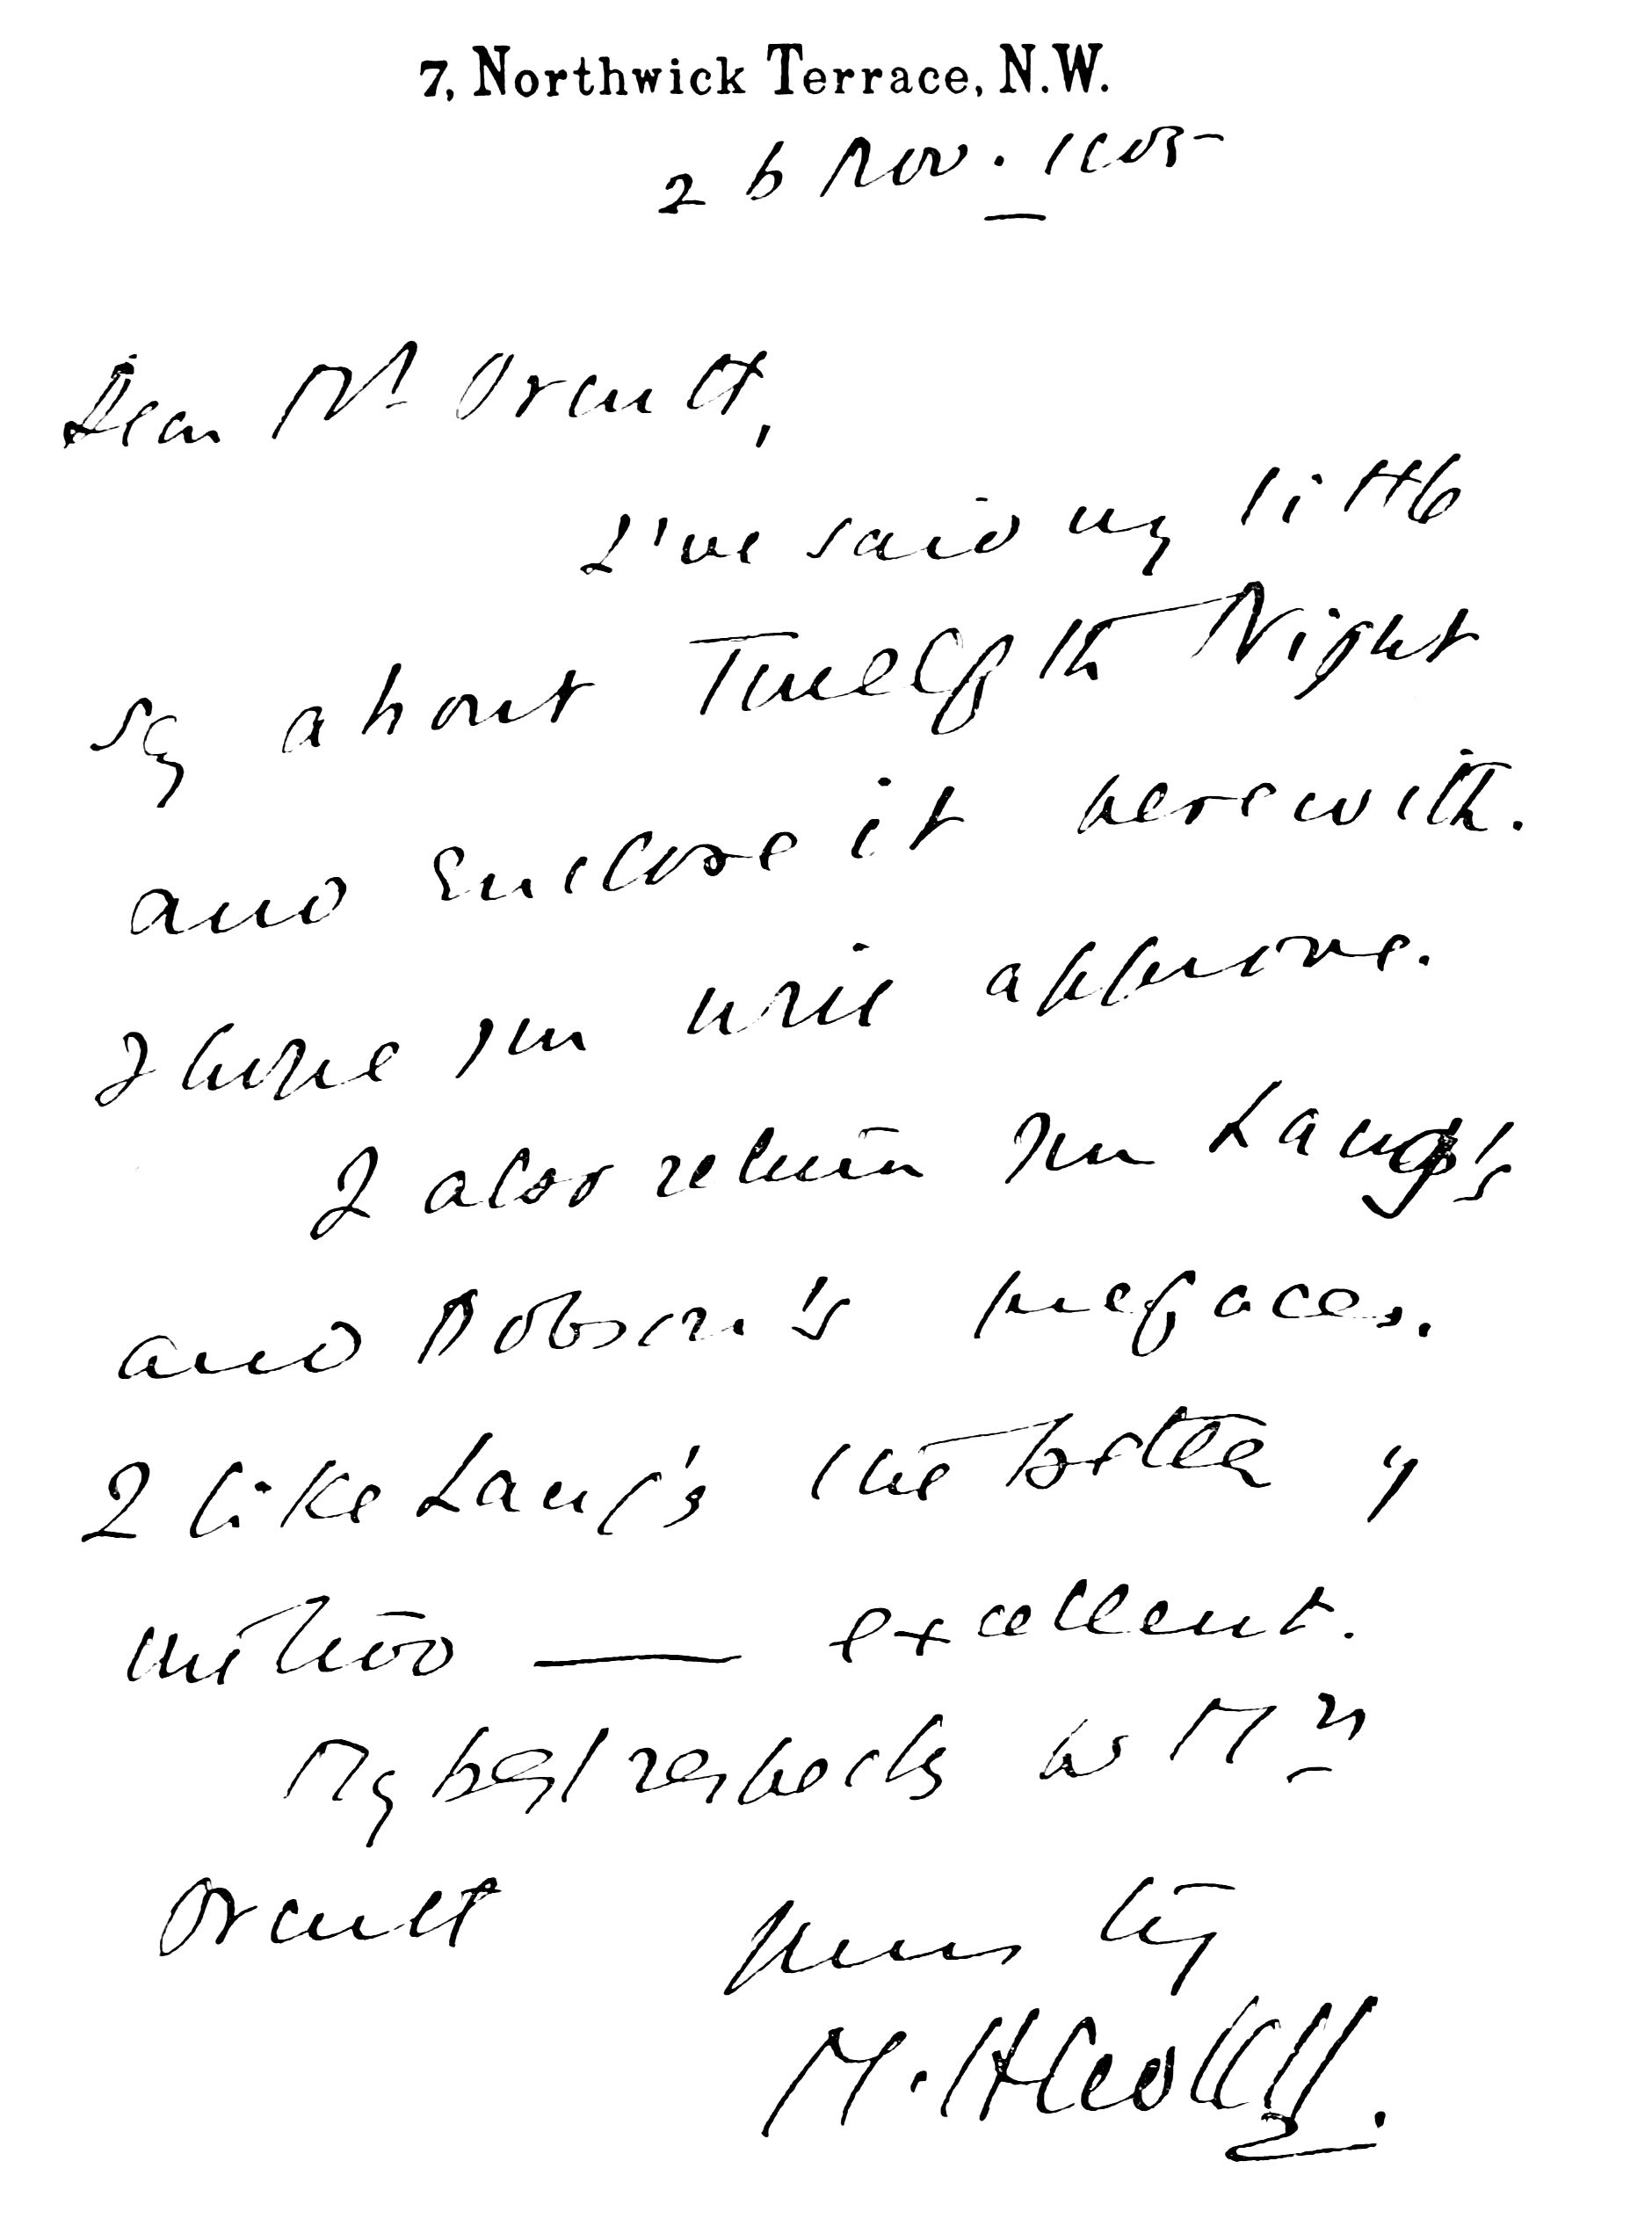 7, Northwick Terrace, N.W.
26 Nov. 1905
Dear Mr Orcutt,
I've said my little
say about Twelfth Night
and enclose it herewith.
I hope you will approve.
I also return you Lang's
and Dobson's prefaces.
I like Lang's the better of
the two — excellent.
My best respects to Mrs
Orcutt
Yours
M. H.